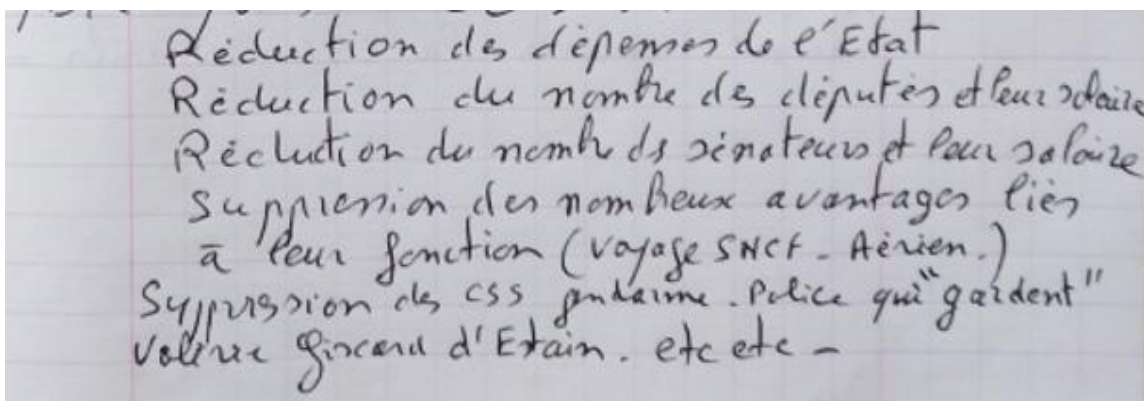 Réduction des dépenses de l'Etat
Réduction du nombre des députés et leur salaire
Réduction du nombre ds sénateurs et leur salaire
Suppression des nombreux avantages liés
à leur fonction (voyage SNCF - Aérien.)
Suppression des CSS gendarme. Police qui "gardent"
Valérie Giscard d'Estain. etc etc -